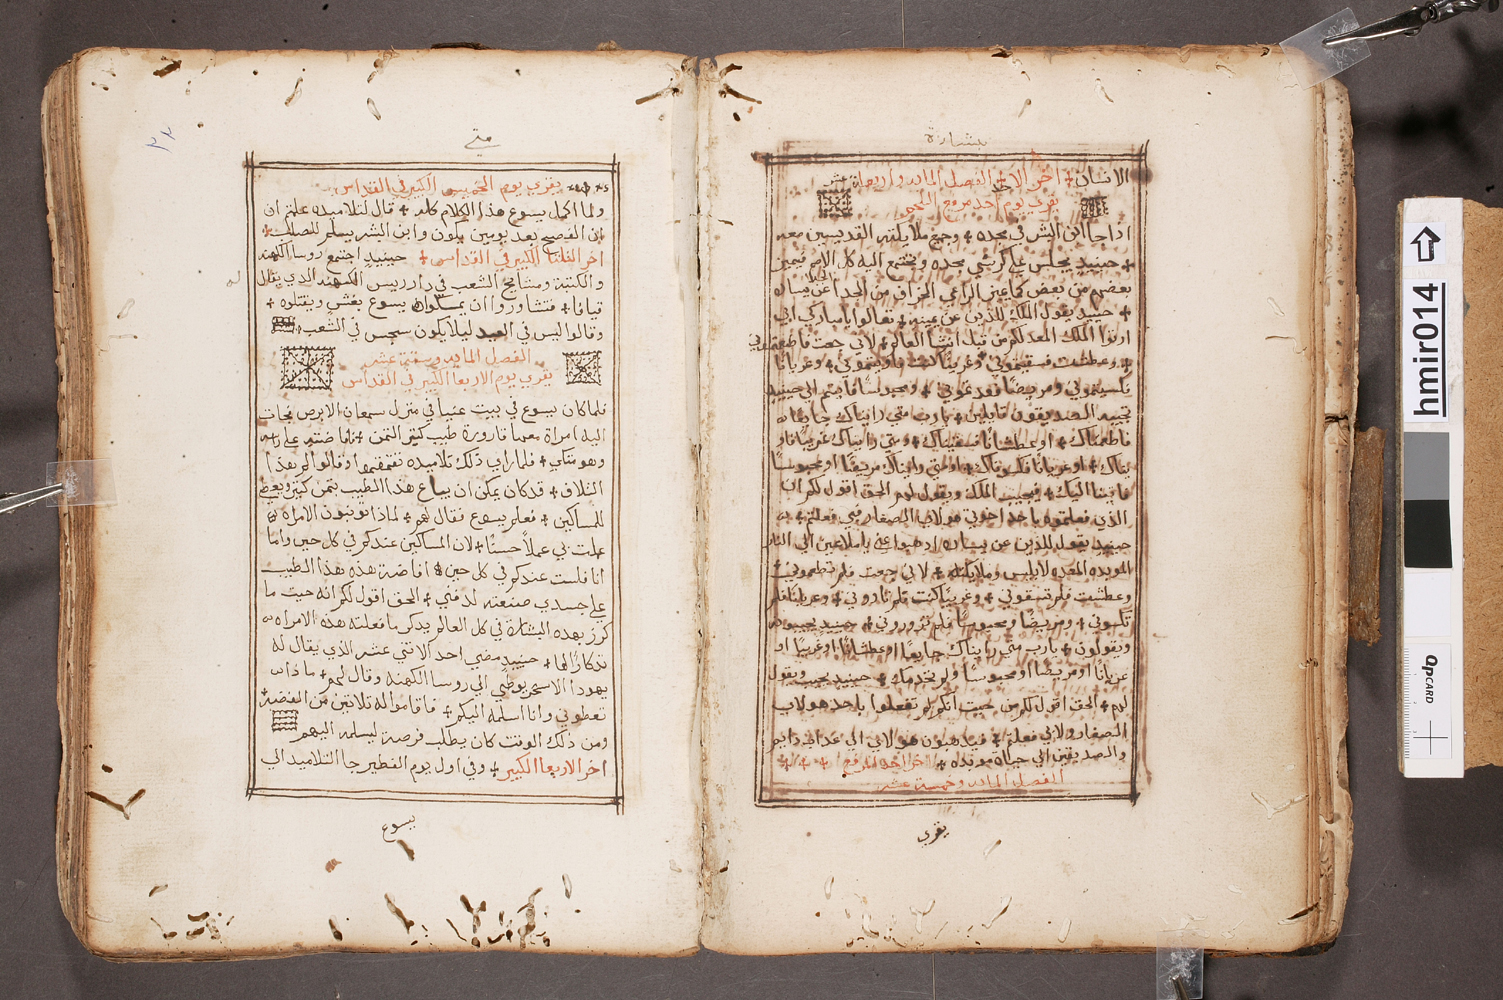 بشارة
الانسان + اخر الاحد + الفصل المايه واربعة عشر
يقري يوم احد مرفع اللحم
اذا جا ابن البشر في مجده + وجميع ملايكته القديسين معه
+ حينيدٍ يجلس علي كرسي مجده ويجتمع اليه كل الامم فيميز
بعضهم من بعض كما يميز الراعي الخراف من الجدا عن يساره
+ حينيد يقول الملك للذين عن يمينه + تعالوا يا مباركي ابي
ارثوا الملك المعد لكم من قبل انشا العالم + لاني جعت فاطعمتموني
+ وعطشت فسقيتموني + وغريبًا كنت فاويتموني + وعريانًا
فكسيتموني + ومريضًا فعدتموني + ومحبوسًا فاتيتم الي حينيد
يجيبه الصديقون قايلين + يارب متي رايناك جايعًا
فاطعمناك + او عطشانًا فسقيناك + ومتي رايناك غريبًا فاو
يناك + او عريانًا فكسوناك + او متي رايناك مريضًا او محبوسًا
فاتينا اليك + فيجيب الملك ويقول لهم الحق اقول لكم ان
الذي فعلتموه باحد اخوتي هولاي الصغار فبي فعلتم +
حينيد يقول للذين عن يساره اذهبوا عني يا ملاعين الي النار
الموبده المعده لابليس وملايكته + لاني جعت فلم تطعموني +
وعطشت فلم تسقوني + وغريبًا كنت فلم تاووني + وعريانًا فلم
تكسوني + ومريضًا ومحبوسًا فلم تزوروني + حينيدٍ يجيبوه
ويقولون + يارب متي رايناك جايعًا او عطشانًا او غريبًا او
عريانًا او مريضًا او محبوسًا ولم نخدمك + حينيد يجيبه ويقول
لهم + الحق اقول لكم من حيث انكم لم تفعلوا باحد هولاي
الصغار ولا بي فعلتم + فيذهبون هولاي الي عداب دايم
والصديقين الي حياه موبده + اخر احد المرفع + + +
الفصل المايه وخمسة عشر
يقري
متي
٢٢
يقري يوم الخميس الكبير في القداس
ولما اكمل يسوع هذا الكلام كله + قال لتلاميده علمتم ان
ان الفصح بعد يومين يكون وابن البشر يسلم للصلب +
اخر الثلاثا الكبير في القداس + حينيدٍ اجتمع روسا الكهنه
والكتبة ومشايخ الشعب في دار رييس الكهنه الدي يقال
له
قيافا + فتشاوروا ان يمسكوا يسوع بغش ويقتلوه +
وقالوا ليس في العيد ليلا يكون سجس في الشعب +
الفصل المايه وستة عشر
يقري يوم الاربعا الكبير في القداس
فلما كان يسوع في بيت عنيا في منزل سمعان الابرص فجات
اليه امراة معها قارورة طيب كثير التمن + فافاضته علي راسه
وهو متكي + فلما راي ذلك تلاميده تقمقموا وقالوا لم هذا
التلاف + قد كان يمكن ان يباع هذا الطيب بثمن كثير ويعطي
للمساكين + فعلم يسوع فقال لهم + لماذا توبخون الامراه
عملت بي عملًا حسنًا + لان المساكين عندكم في كل حين واما
انا فلست عندكم في كل حين افاضة هذه هذا الطيب
علي جسدي صنعته لدفني + الحق اقول لكم انه حيث ما
كرز بهذه البشارة في كل العالم يدكر ما فعلته هذه الامراه
تدكارًا لها + حينيدٍ مضي احد الاتني عشر الذي يقال له
يهودا الاسخريوطي الي روسا الكهنه وقال لهم + ماذا
تعطوني وانا اسلمه اليكم + فاقاموا له تلاتين من الفضة +
ومن ذلك الوقت كان يطلب فرصة ليسلمه اليهم
اخر الاربعا الكبير + وفي اول يوم الفطير جا التلاميد الي
يسوع
hmir014
QPCARD